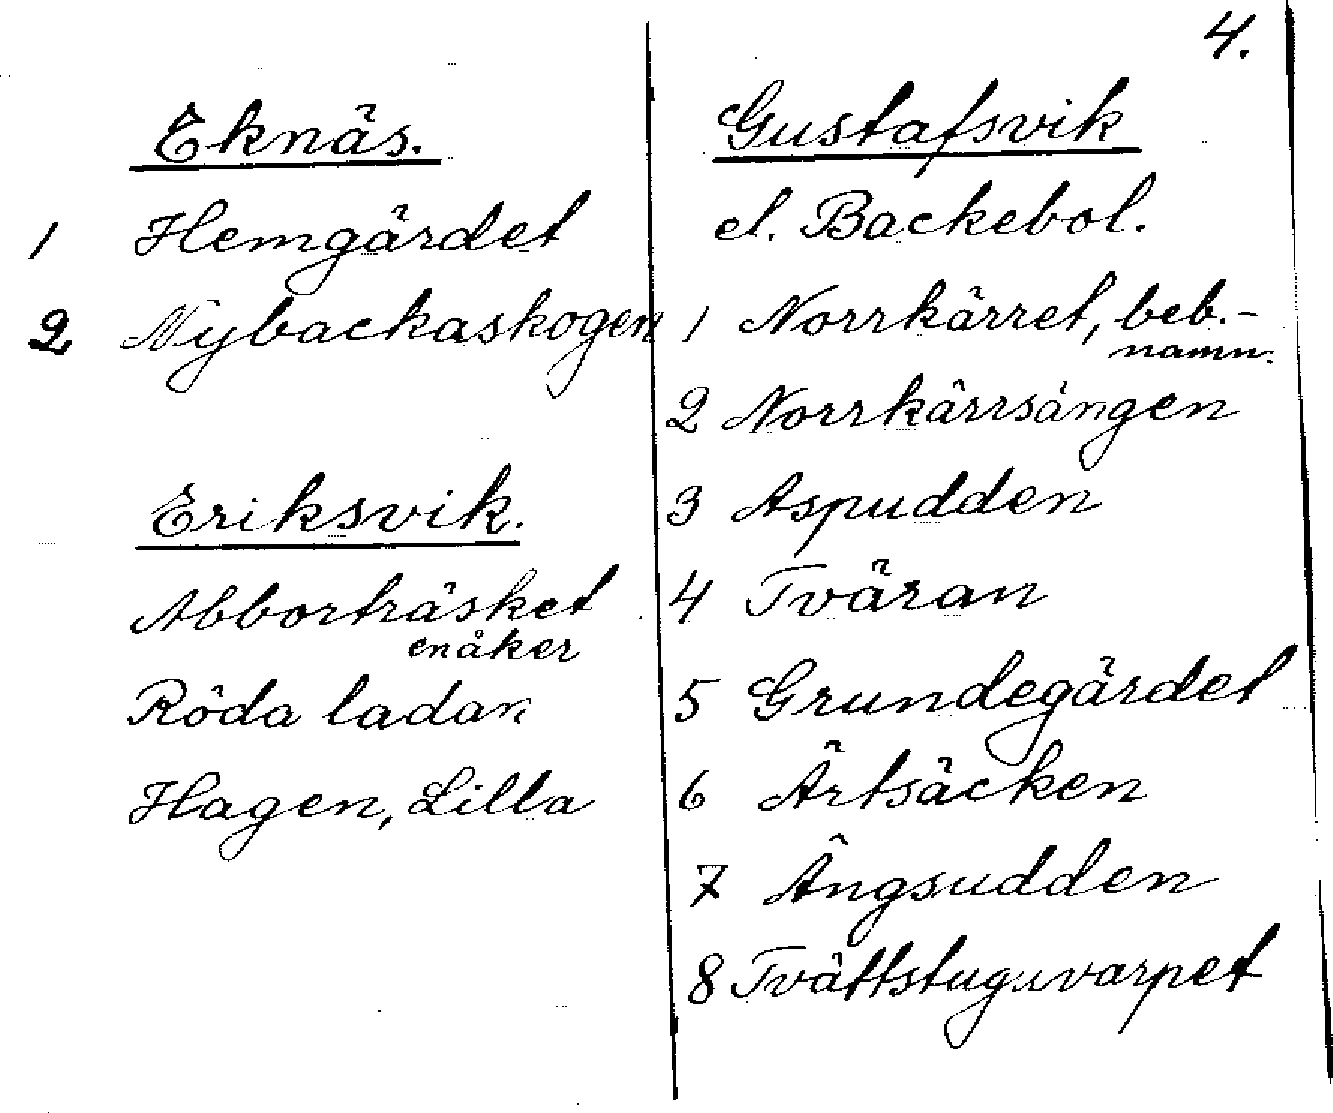 4.
Eknäs.
1 Hemgärdet
2 Nybackaskogen
Eriksvik.
Abborträsket
en åker
Röda ladan
Hagen, Lilla
Gustafsvik
el. Backebol.
1 Norrkärret, beb.-
namn.
2 Norrkärrsängen
3 Aspudden
4 Tväran
5 Grundegärdet
6 Ärtsäcken
7 Ängsudden
8 Tvättstuguvarpet